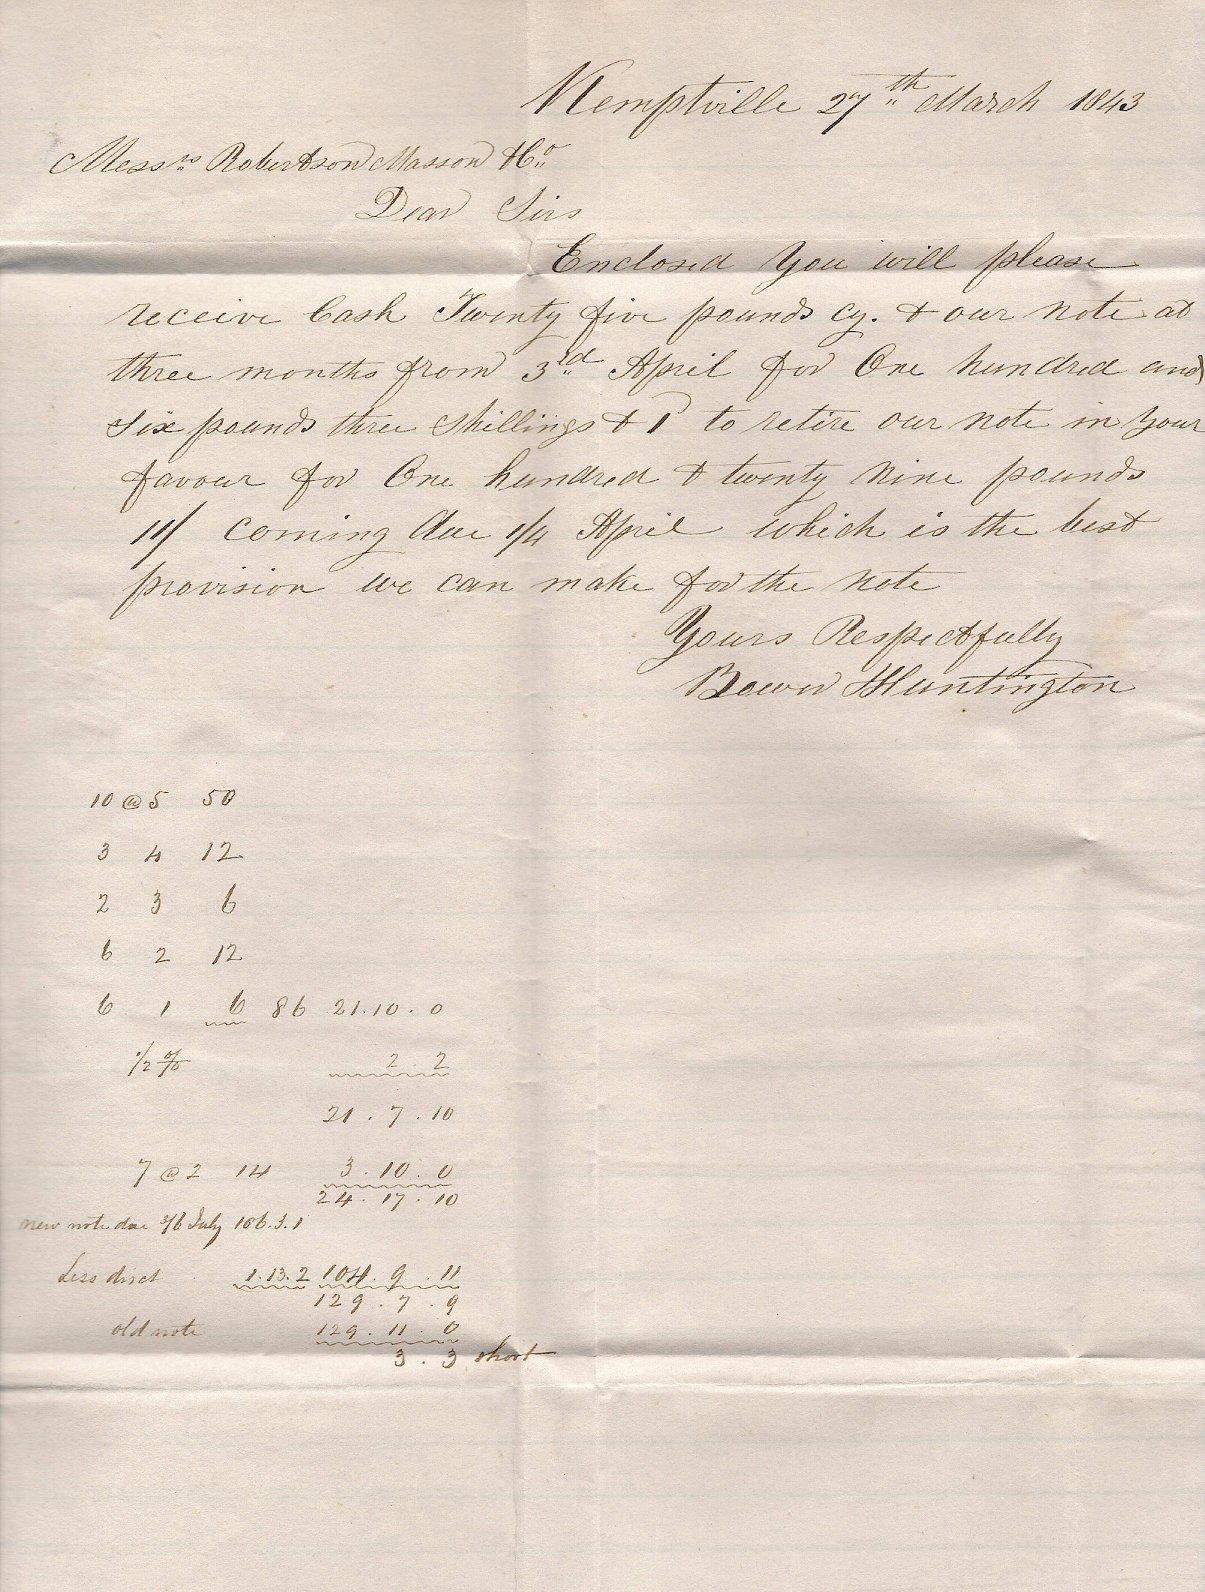 Kemptville 27th March 1843
Messrs Robertson Masson & Co
Dear Sirs
Enclosed you will please
receive Cash Twenty five pounds cy. & our note at
three months from 3rd April for One hundred and
six pounds three shillings & 1 to retire our note in your
favour for One hundred & twenty nine pounds
11/ coming due 1/4 April which is the best
provision we can make for the note
Yours Respectfully
Bower & Huntington
10 @ 5 50
3 4 12
2 3 6
6 2 12
6 1 6 86 21.10.0
1/2 % 2 2
21.7.10
7 @ 2 14 3.10.0
24.17.10
new note due 3/6 July 106.3.1
Less disct 1.13.2 104.9.11
129.7.9
old note 129.11.0
3.3 short